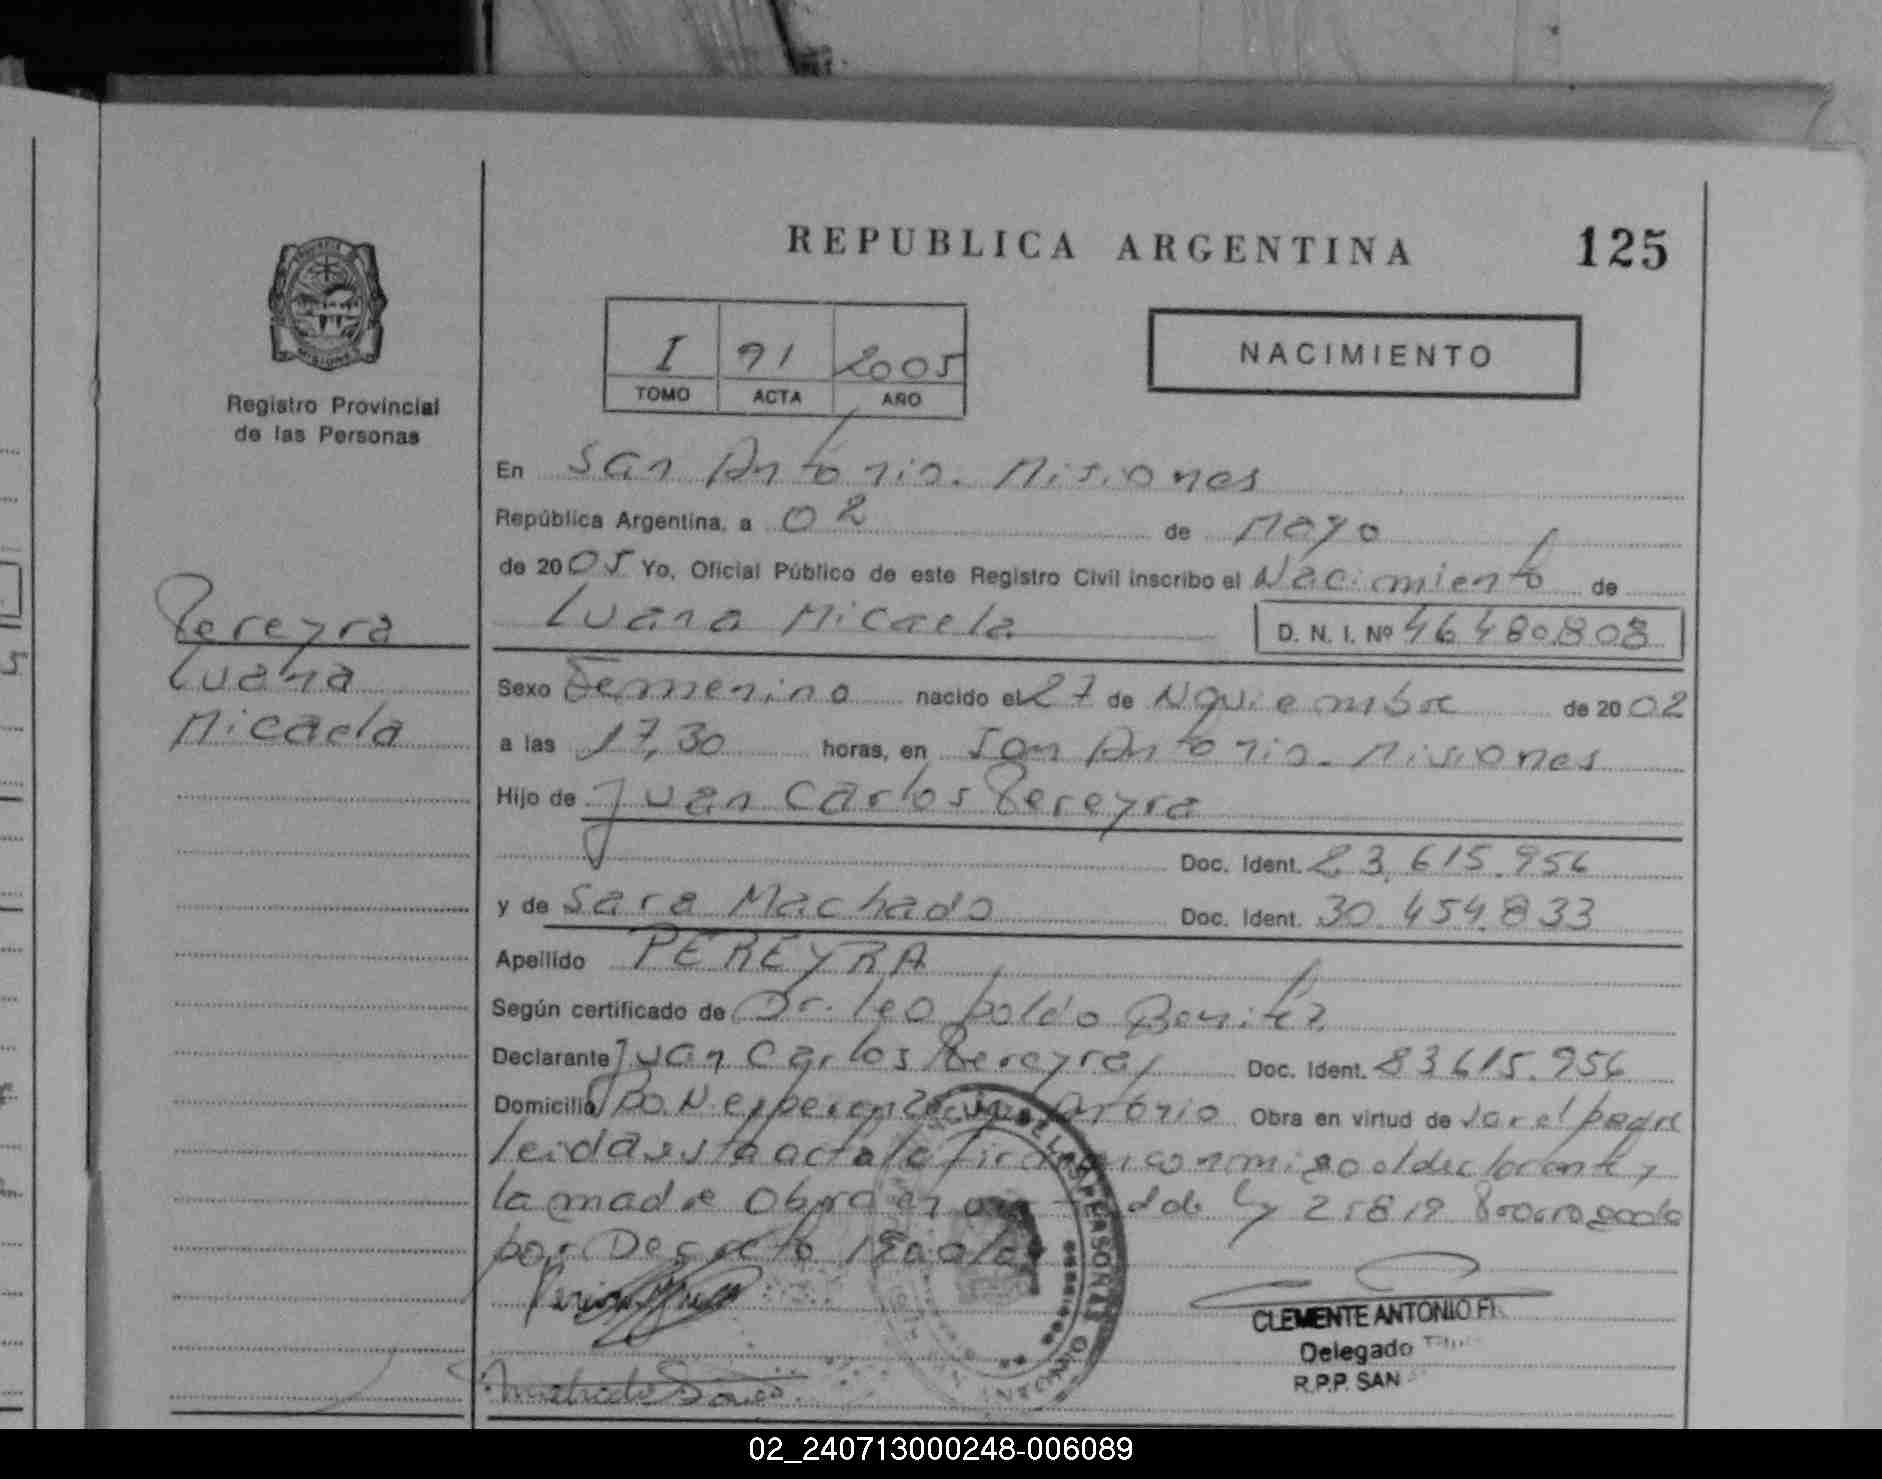 REPUBLICA ARGENTINA
125
MISIONES
Registro Provincial
de las Personas
I 91 2005
TOMO ACTA AÑO
NACIMIENTO
Pereyra
Luana
Micaela
En San Antonio. Misiones
República Argentina, a 02 de Mayo
de 2005 Yo, Oficial Público de este Registro Civil inscribo el Nacimiento de
Luana Micaela D. N. I. Nº 46.480.808
Sexo Femenino nacido el 27 de Noviembre de 2002
a las 17,30 horas, en San Antonio. Misiones
Hijo de Juan Carlos Pereyra
Doc. Ident. 23.615.956
y de Sara Machado Doc. Ident. 30.454.833
Apellido PEREYRA
Según certificado de Dr. Leopoldo Benitez
Declarante Juan Carlos Pereyra Doc. Ident. 23.615.956
Domicilio Antonio Obra en virtud de ser el padre
leida esta acta la firman conmigo el declarante y
la madre Obra en de Ley 25819 Prorrogado
por Decreto
Machado Sara
CLEMENTE ANTONIO
Delegado
R.P.P. SAN
02_240713000248-006089